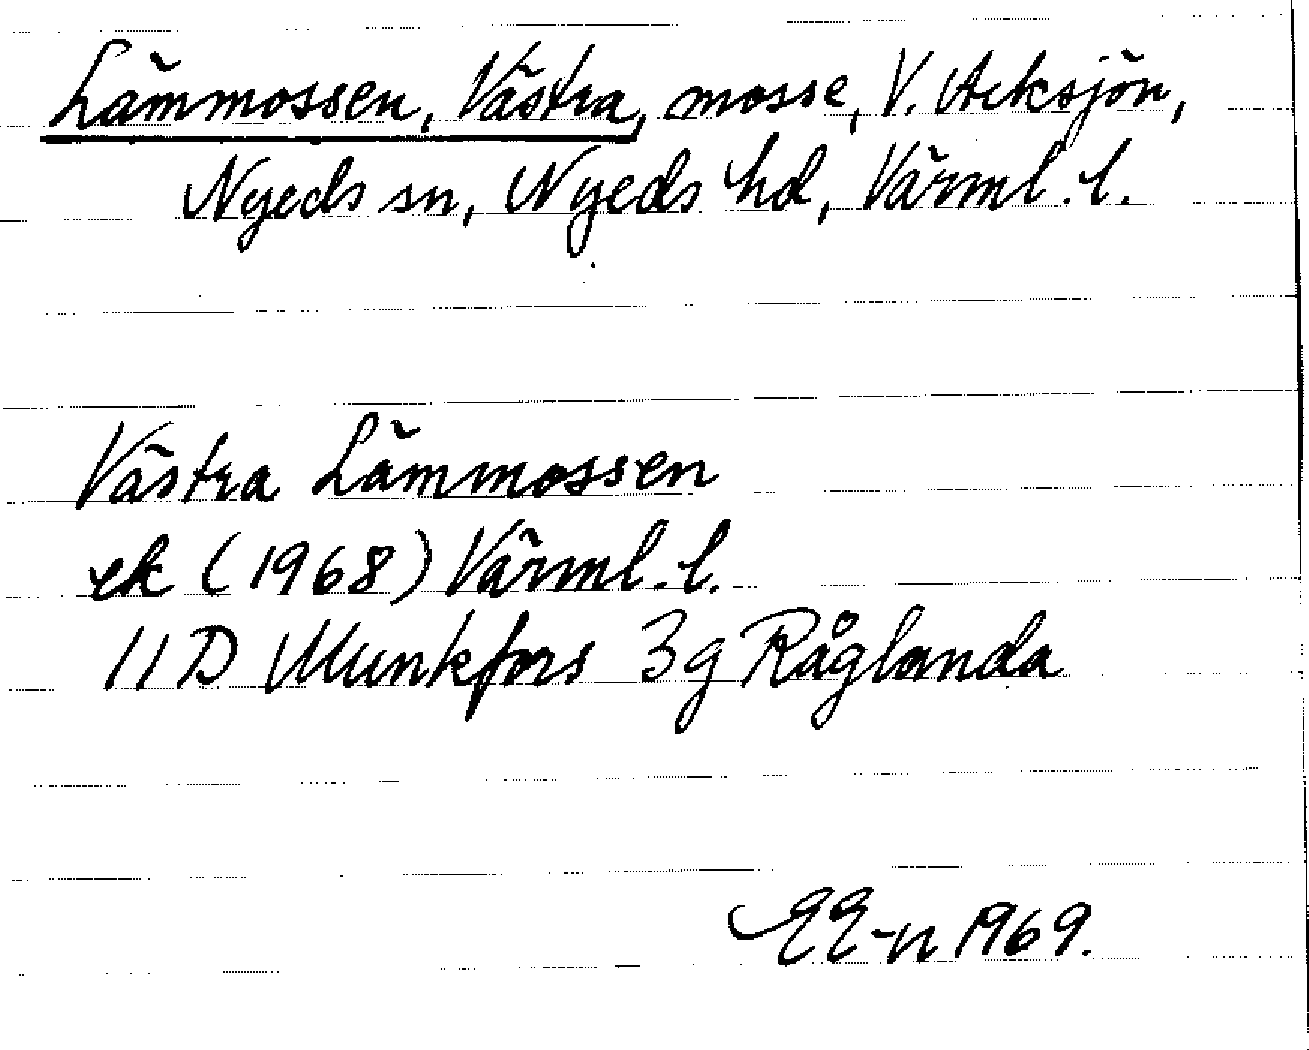 Lämmossen, Västra, mosse, V. Acksjön,
Nyeds sn, Nyeds hd, Värml. l.
Västra Lämmossen
ek (1968) Värml. l.
11D Munkfors 3g Råglanda
EE-n 1969.